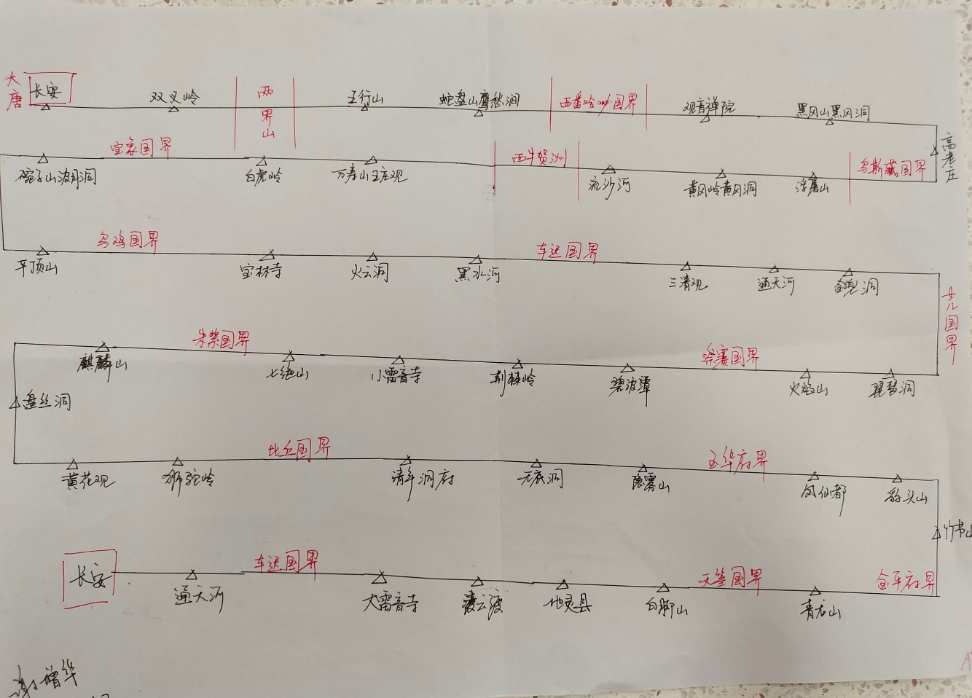 大唐 长安 双叉岭 两界山 五行山 蛇盘山鹰愁涧 西番哈咇国界 观音禅院 黑风山黑风洞
高老庄
宝象国界 西牛贺洲 乌斯藏国界
碗子山波月洞 白虎岭 万寿山五庄观 流沙河 黄风岭黄风洞 浮屠山
乌鸡国界 车迟国界
平顶山 宝林寺 火云洞 黑水河 三清观 通天河 金兜洞
女儿国界
朱紫国界 祭赛国界
麒麟山 七绝山 小雷音寺 荆棘岭 碧波潭 火焰山 琵琶洞
盘丝洞
比丘国界 玉华府界
黄花观 狮驼岭 清华洞府 无底洞 隐雾山 凤仙郡 豹头山
竹节山
长安 车迟国界 天竺国界 金平府界
通天河 大雷音寺 凌云渡 地灵县 白脚山 青龙山